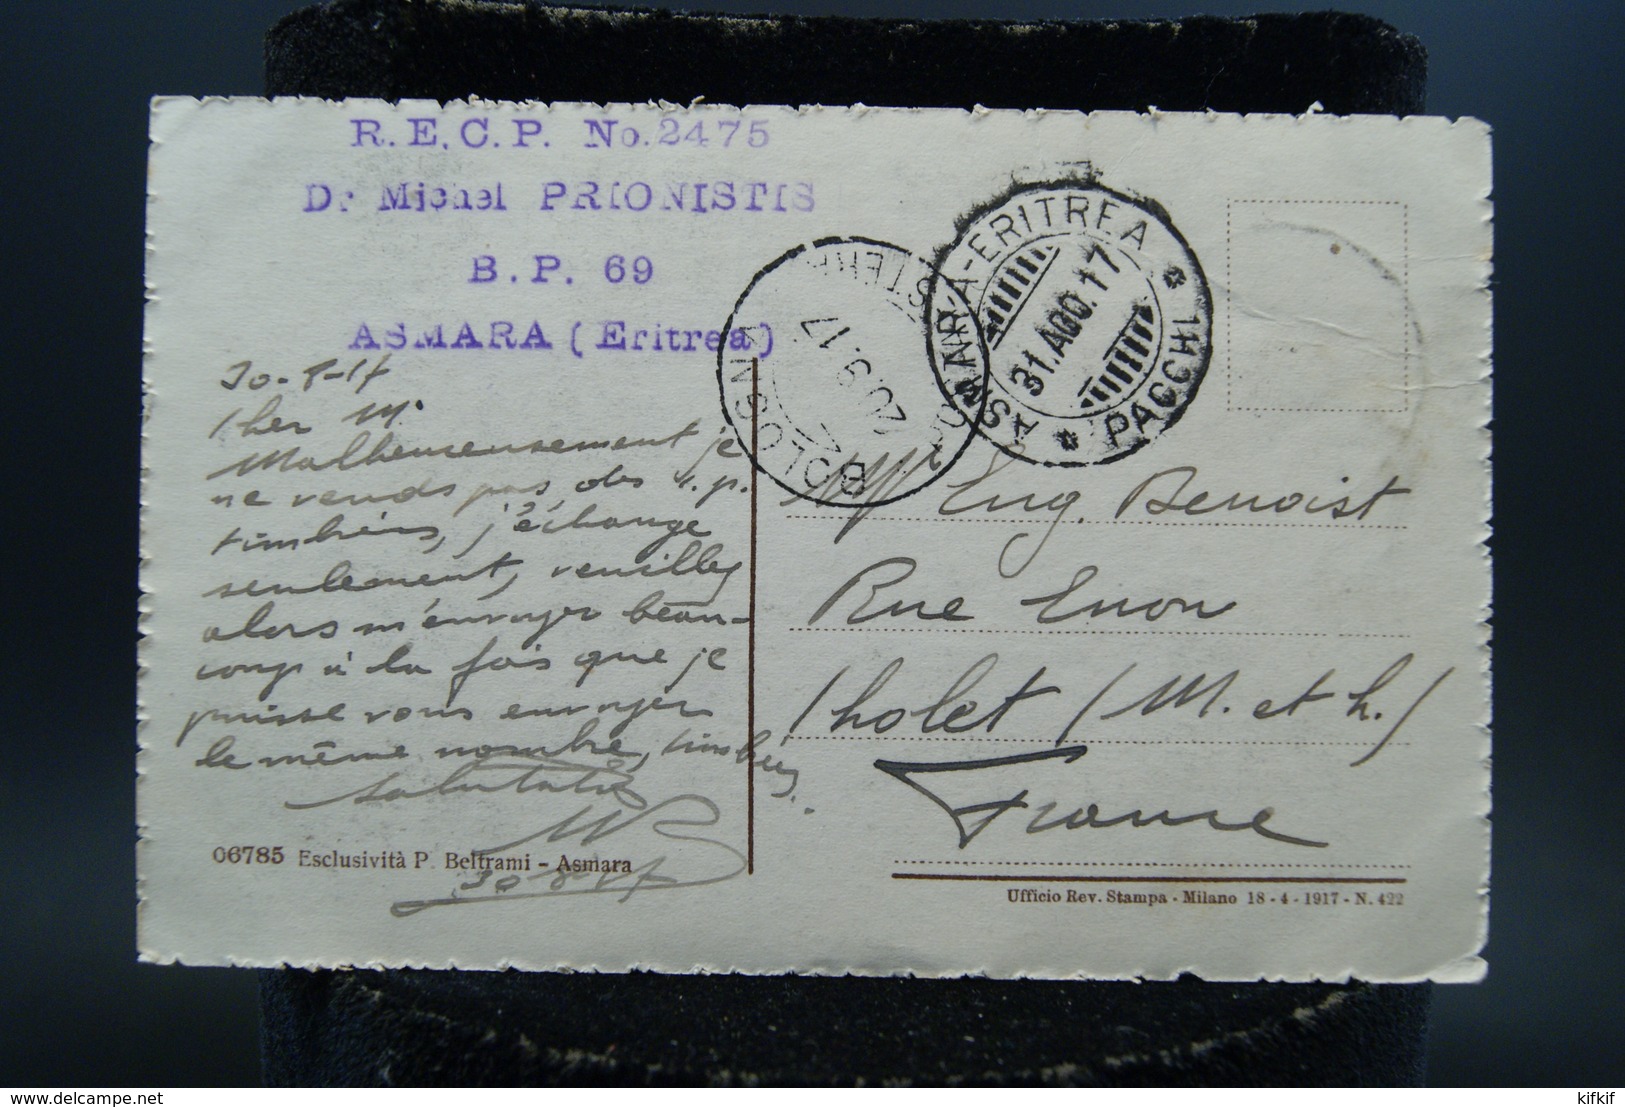 R.E.C.P. No. 2475
Dr Michel PRIONISTIS
B.P. 69
ASMARA (Eritrea)
30-8-17
Cher M.
Malheureusement je
ne vends pas des
timbres, j'échange
seulement, veuillez
alors m'envoyer beau-
coup à la fois que je
puisse vous envoyer
le même nombre, timbres.
30-8-17
06785 Esclusività P. Beltrami - Asmara
ASMARA-ERITREA
31.AGO.17
* PACCHI *
BOLOGNA
20.9.17
Eug. Benoist
Rue
Cholet (M. et L.)
France
Ufficio Rev. Stampa - Milano 18-4-1917 - N. 422
delcampe.net
kifkif